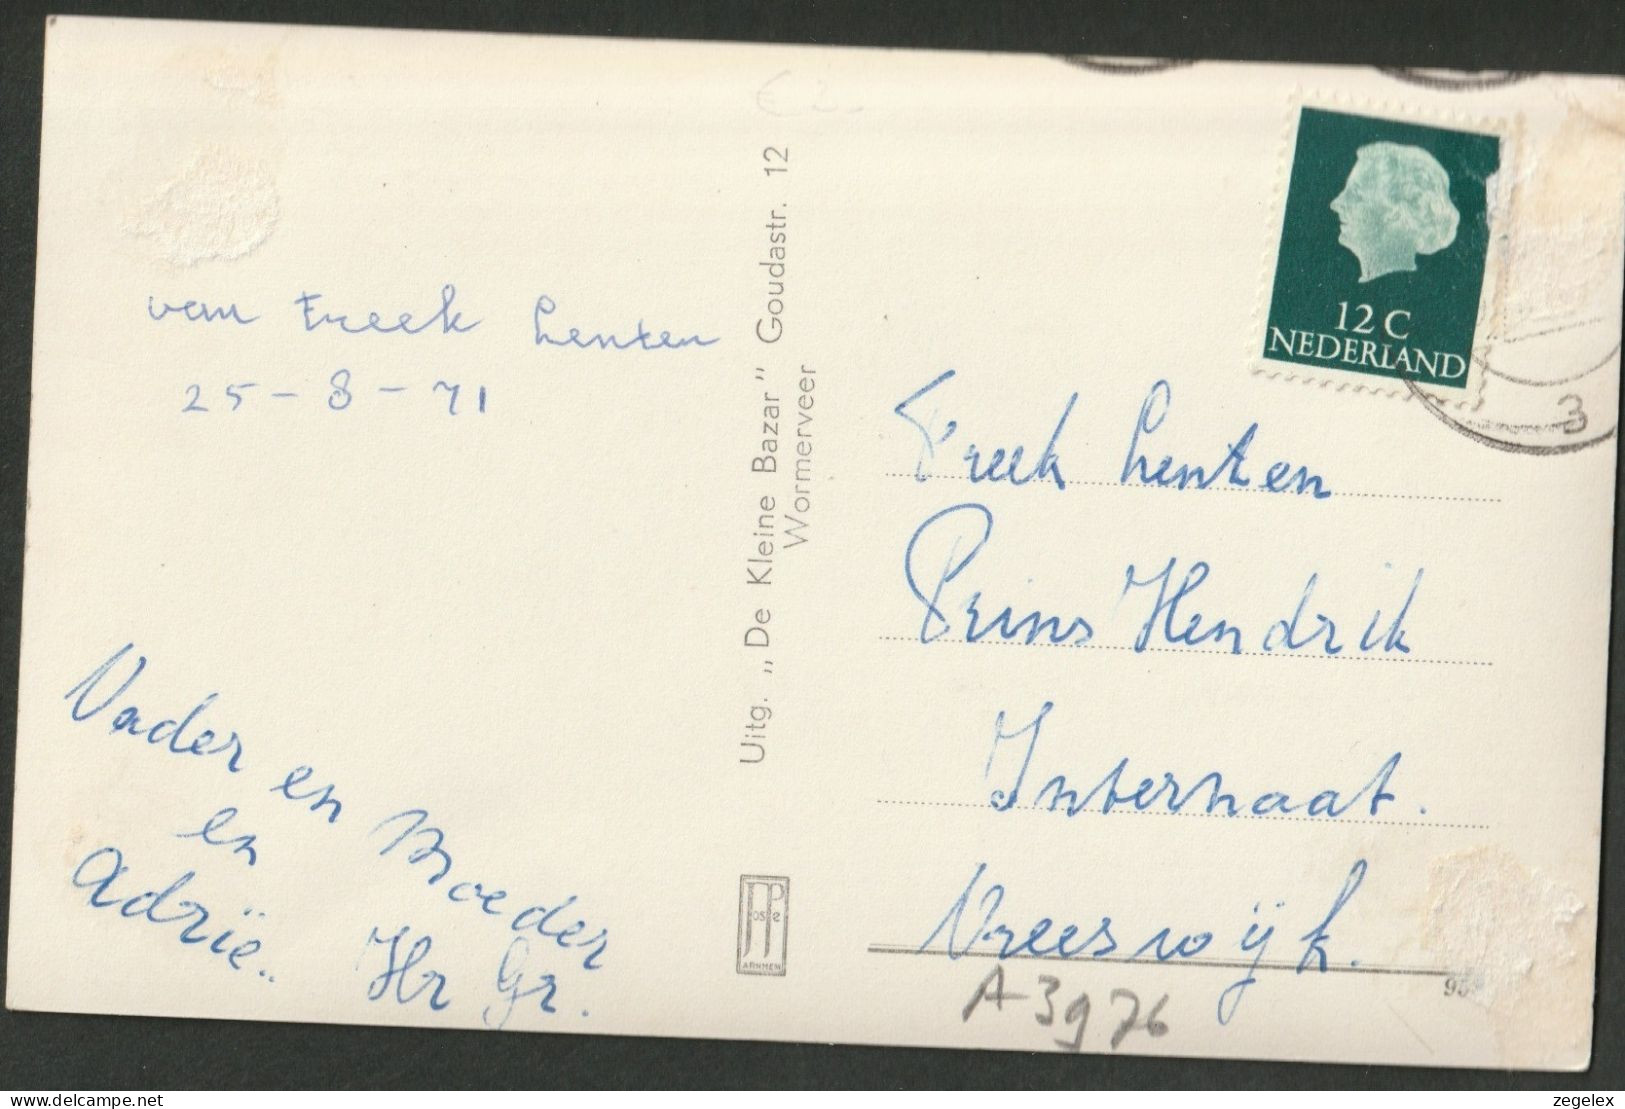 van Freek Lenten
25-8-71
Vader en Moeder
en
Adrïe.. Hr Gr.
Uitg. „De Kleine Bazar" Goudastr. 12
Wormerveer
JP
ARNHEM
12 C
NEDERLAND
3
Freek Lenten
Prins Hendrik
Internaat.
Vreeswijk.
A3976
zegelex
www.delcampe.net